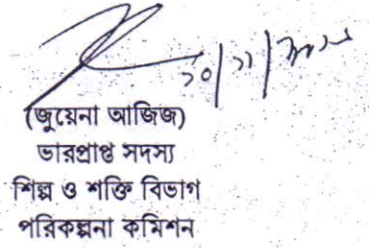 ১০/১১/
(জুয়েনা আজিজ)
ভারপ্রাপ্ত সদস্য
শিল্প ও শক্তি বিভাগ
পরিকল্পনা কমিশন